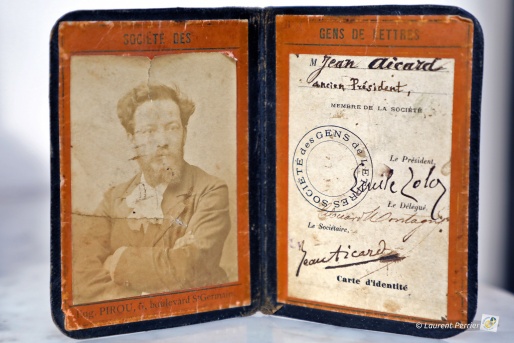 SOCIÉTÉ DES
Eug. PIROU, 5, boulevard St Germain
GENS DE LETTRES
M Jean Aicard
ancien Président,
MEMBRE DE LA SOCIÉTÉ
SOCIÉTÉ des GENS de LETTRES
Le Président,
Emile Zola
Le Délégué,
Le Sociétaire,
Jean Aicard
Carte d'identité
© Laurent Perrier